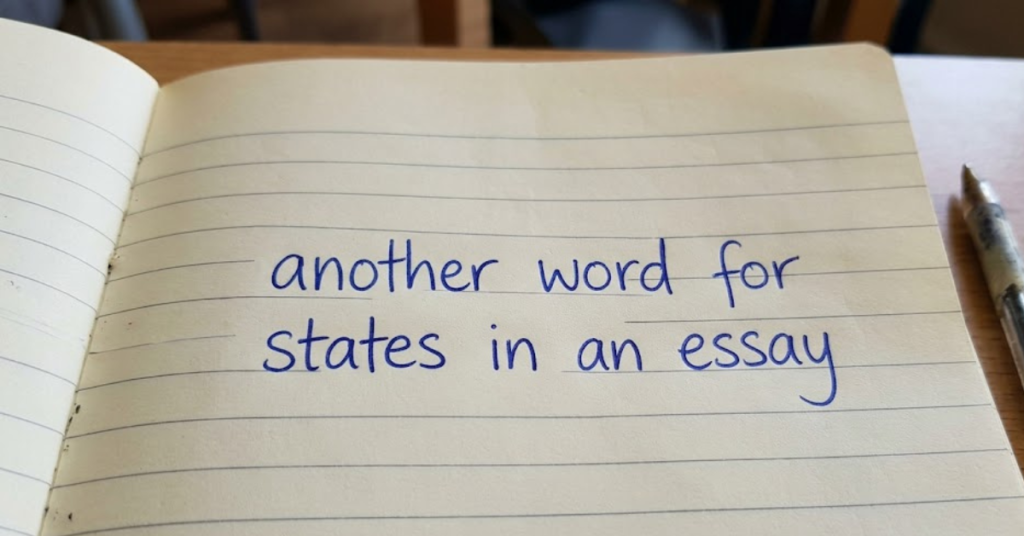 another word for
states in an essay